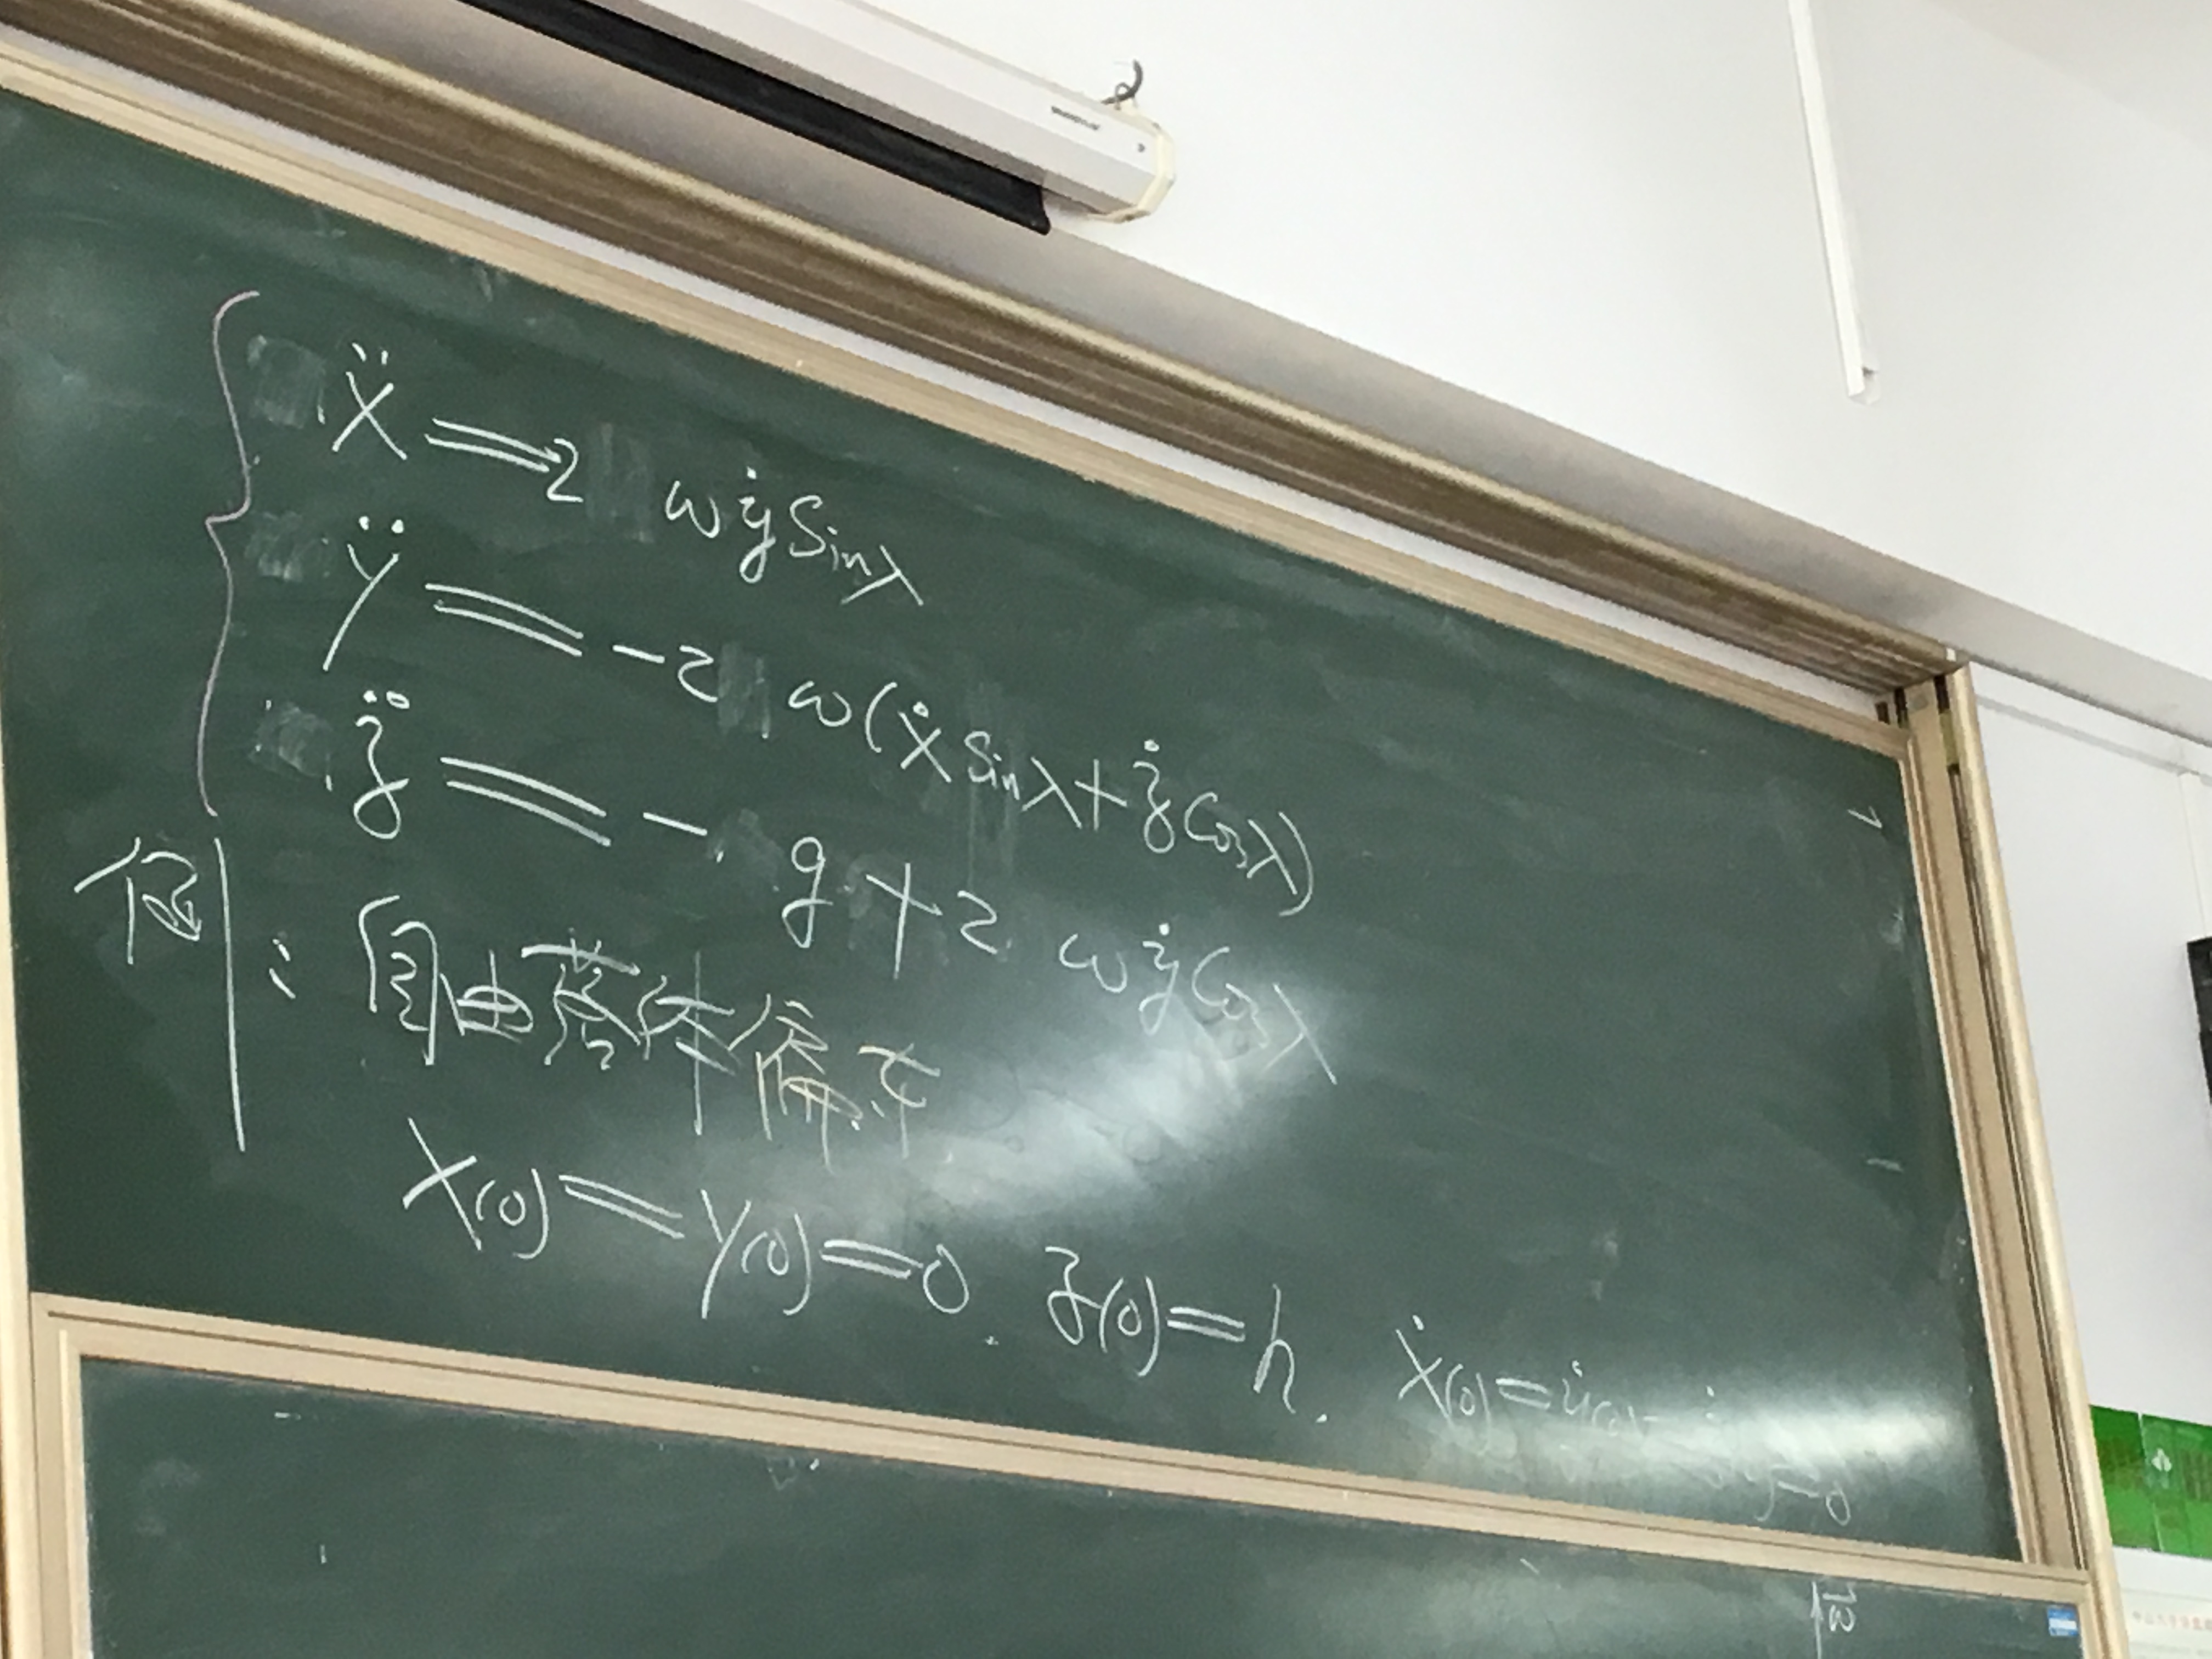 ẍ = 2 ωẏ sinλ
ÿ = -2 ω(ẋ sinλ + ż cosλ)
z̈ = - g + 2 ωẏ cosλ
例: 自由落体偏东
x(0) = y(0) = 0. z(0) = h. ẋ(0) = ẏ(0) = ż(0) = 0
ω⃗